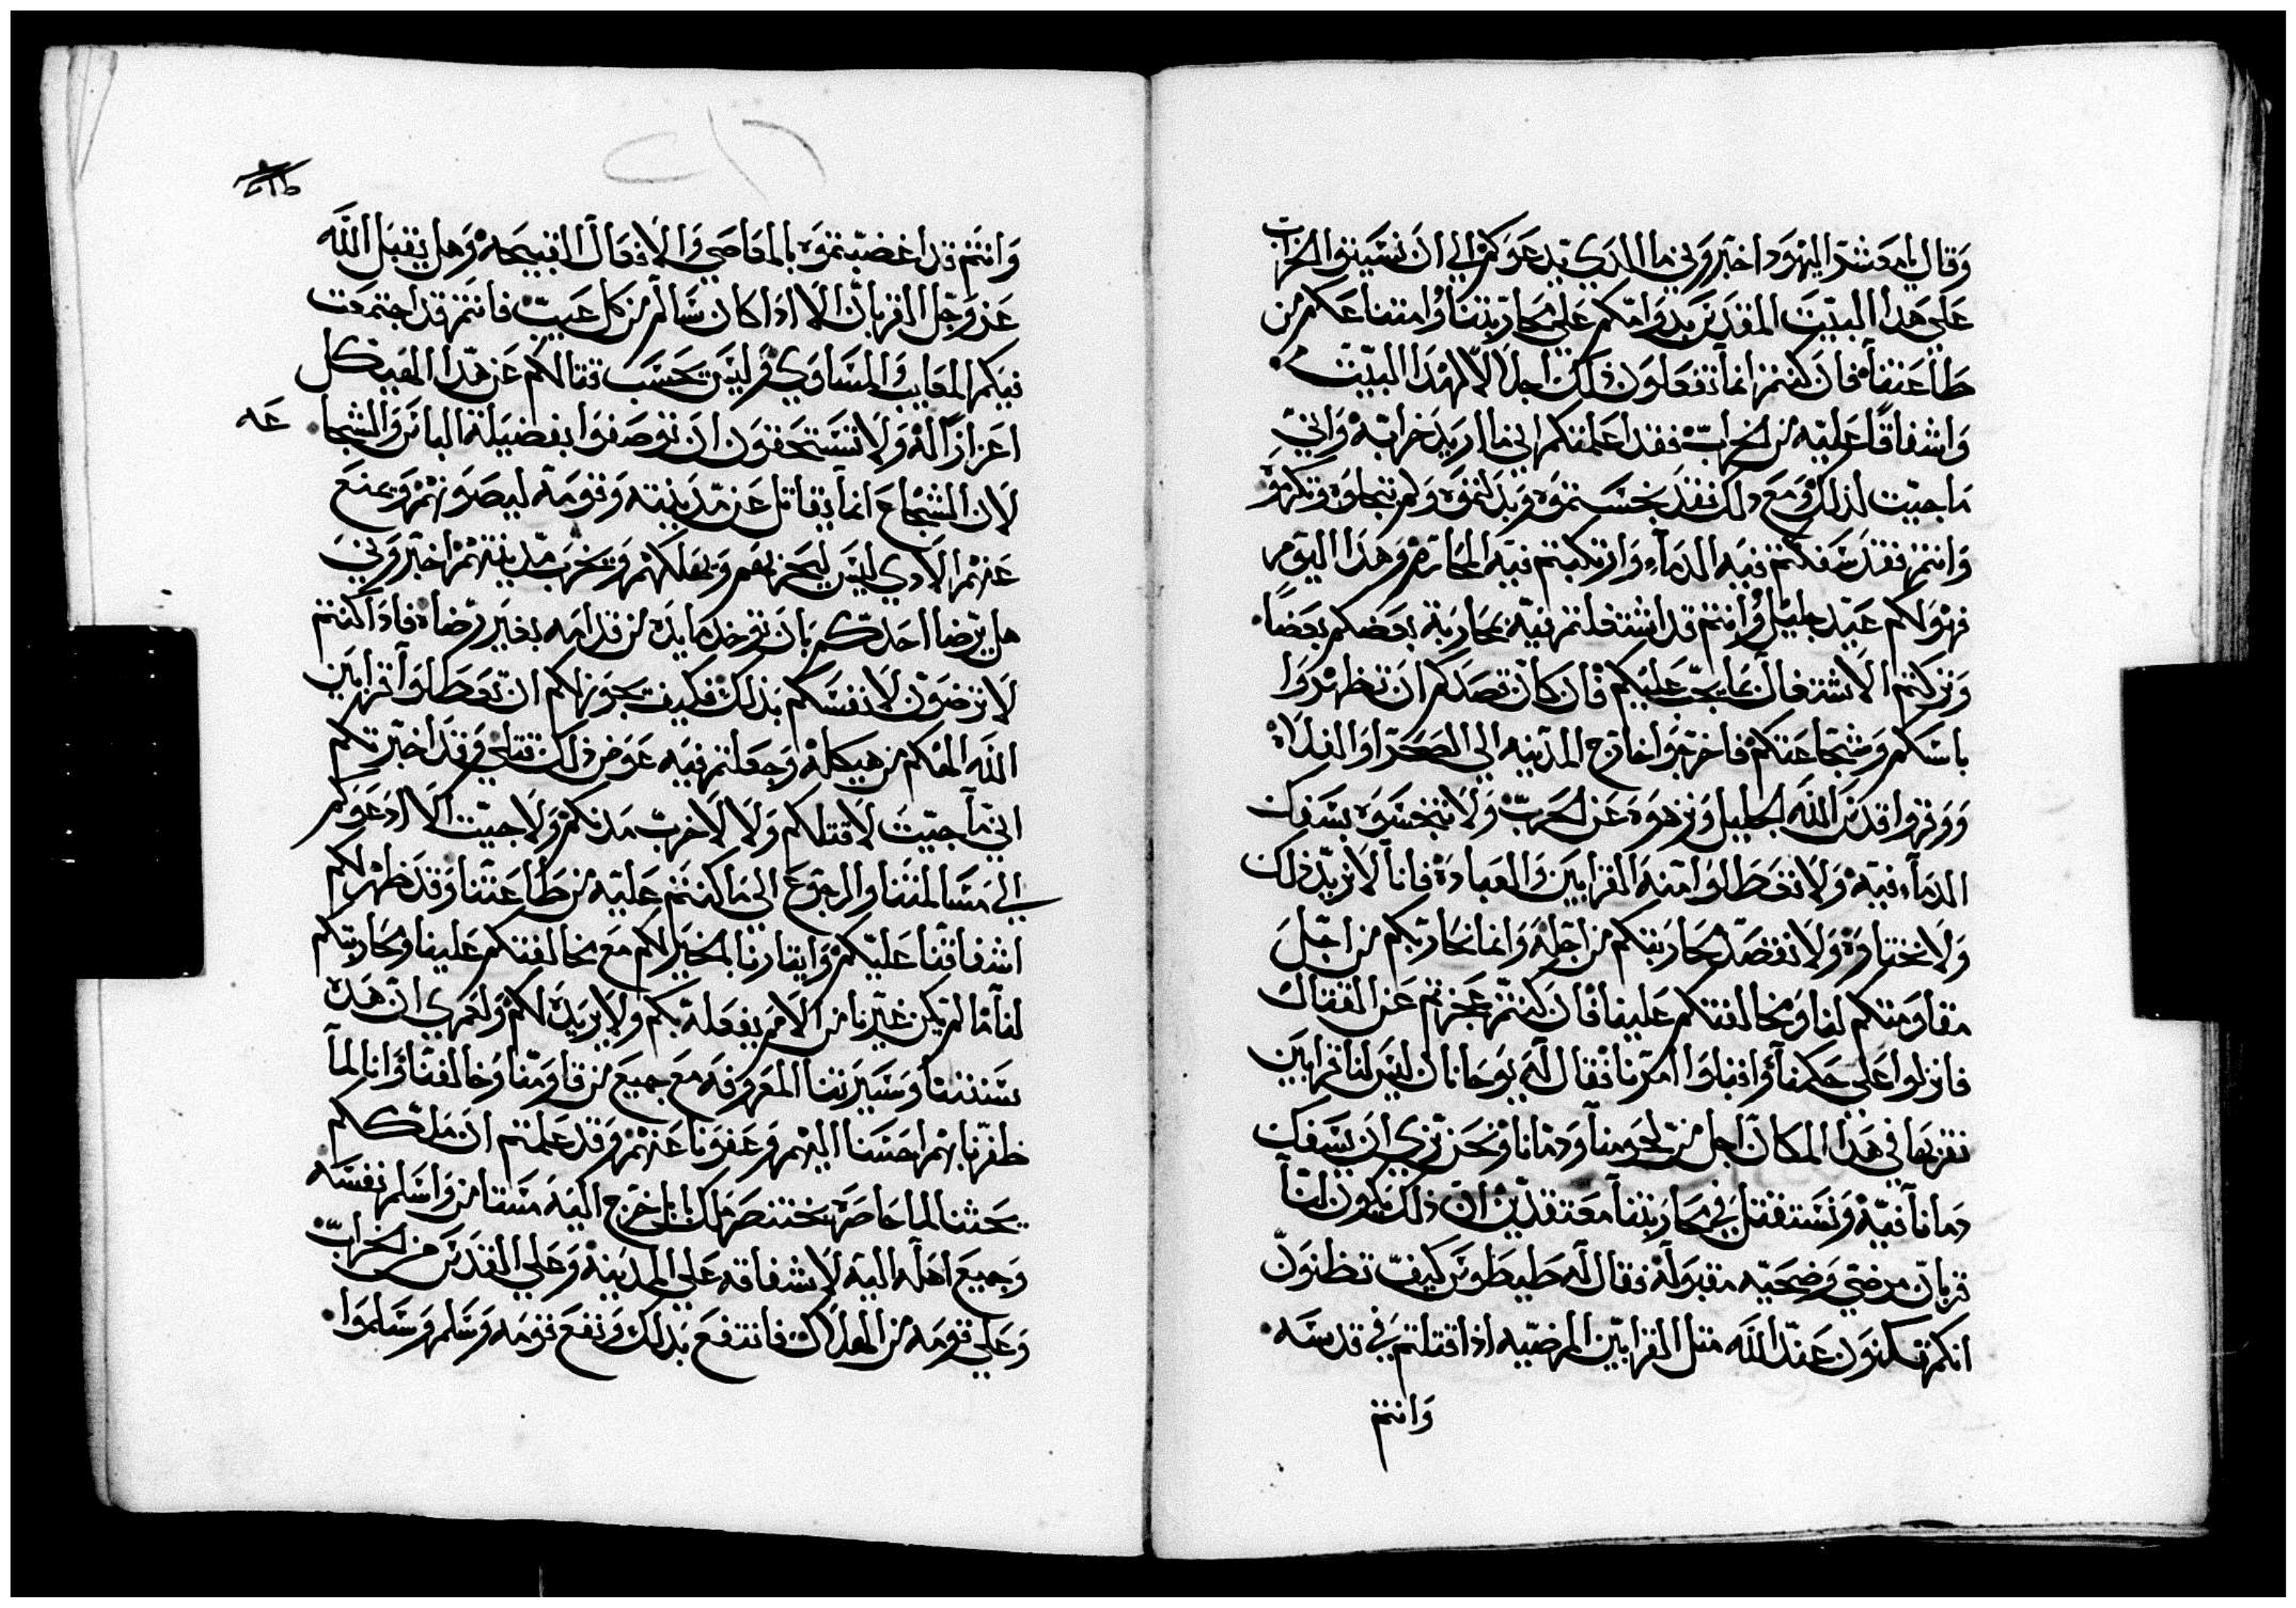 وقال يا معشر اليهود اخبروني ما الدي يدعوكم الي ان تسببوا الخراب
علي هدا البيت المقدس بدوامكم علي محاربتنا وامتناعكم من
طاعتنا فان كنتم انما تفعلون ذلك اجلالا لهدا البيت
واشفاقا عليه من الخراب فقد اعلمتكم اني ما اريد خرابه واني
ما جيت لذلك ومع ذلك فقد بخستموه وبدلتموه ولم تجلوه وتكرموه
وانتم فقد سفكتم فيه الدماء وارتكبتم فيه المحارم وهدا اليوم
فهو لكم عيد جليل وانتم قد اشتغلتم فيه بمحاربة بعضكم بعضا
وتركتم الاشتغال بما يجب عليكم فان كان قصدكم ان تظهروا
باسكم وشجاعتكم فاخرجوا خارج المدينه الي الصحرا والفلاه
ووقروا قدس الله الجليل ونزهوه عن الحرب ولا تنجسوه بسفك
الدماء فيه ولا تعطلوا منه القرابين والعباده فانا لا نريد ذلك
ولا نختاره ولا نقصد محاربتكم من اجله وانما نحاربكم من اجل
مقاومتكم لنا ومخالفتكم علينا فان كنتم عجزتم عن القتال
فانزلوا علي حكمنا واقبلوا امرنا فقال له يوحانان ليس لنا قرابين
نقربها في هدا المكان اجل من لحومنا ودمانا ونحن نري ان نسفك
دمانا فيه ونستقتل في محاربتنا معتقدين ان ذلك يكون لنا
قربان مرضي وضحيه مقبوله فقال له طيطوس كيف تظنون
انكم تكونون عند الله مثل القرابين المرضيه اذا قتلتم في قدسه
وانتم
وانتم قد اغضبتموه بالمعاصي والافعال القبيحه وهل يقبل الله
عز وجل القربان الا ادا كان سالم من كل عيب فانتم قد اجتمعت
فيكم المعايب والمساوي وليس تحسب قتالكم عن هدا الهيكل
اعزازا له ولا تستحقون ان توصفوا بفضيلة الباس والشجاعه
لان الشجاع انما يقاتل عن مدينته وقومه ليصونهم ويمنع
عنهم الادي ليس ليحزنهم ويهلكهم وتخرب مدينتهم اخبروني
هل يرضا احدكم بان توخد مايده من قدامه بغير رضاه فادا كنتم
لا ترضون لانفسكم بذلك فكيف يجوز لكم ان تعطلوا قرابين
الله الهكم من هيكله وجعلتم فيه عوض ذلك قتلي وقد اخبرتكم
اني ما جيت لاقتلكم ولا لاخرب مدنكم ولا جيت الا ادعوكم
الي مسالمتنا والرجوع الي ما كنتم عليه من طاعتنا وقد ظهر لكم
اشفاقنا عليكم وايثارنا الخير لكم مع مخالفتكم علينا ومحاربتكم
لنا ما لم يكن غيرنا من الامم يفعله بكم ولا يريده لكم ولعمري ان هده
سنتنا وسيرتنا المعروفه مع جميع من قاومنا وخالفنا وانا لما
ظفرنا بهم احسنا اليهم وعفونا عنهم وقد علمتم ان ملككم
يحثنا لما حاصره بختنصر ملك بابل خرج اليه مستامن واسلم نفسه
وجميع اهله اليه لاشفاقه علي المدينه وعلي القدس من الخراب
وعلي قومه من الهلاك فانتفع بدلك ونفع قومه وسلم وسلموا